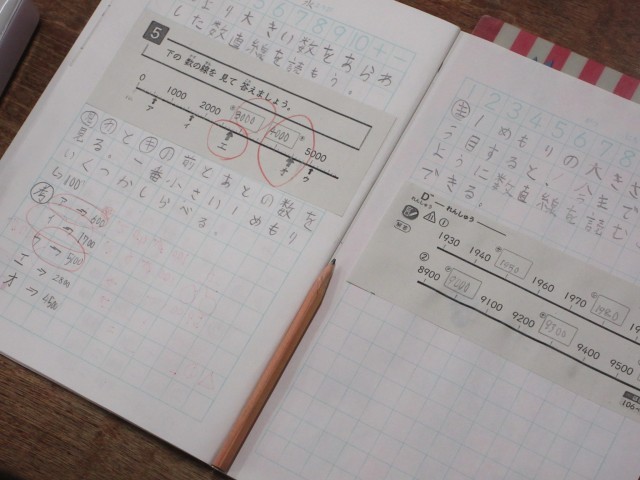 5678910+-
より大きい数をあらわ
した数直線を読もう。
5 下の数の線を見て答えましょう。
0 1000 2000 3000 4000 5000
ア イ エ オ ウ
見る。一番小さい1めもり
いくつかしらべる。
と の前とあとの数を
ら100
考 ア→600
イ→1700
ウ→500
エ→2800
オ→4500
12345678
1めもりの大きさ
う目すると、今まで
ように数直線を読む
できる。
D れんしゅう
1930 1940 1950 1960 1970 1980
② 8900 9000 9100 9200 9300 9400 9500